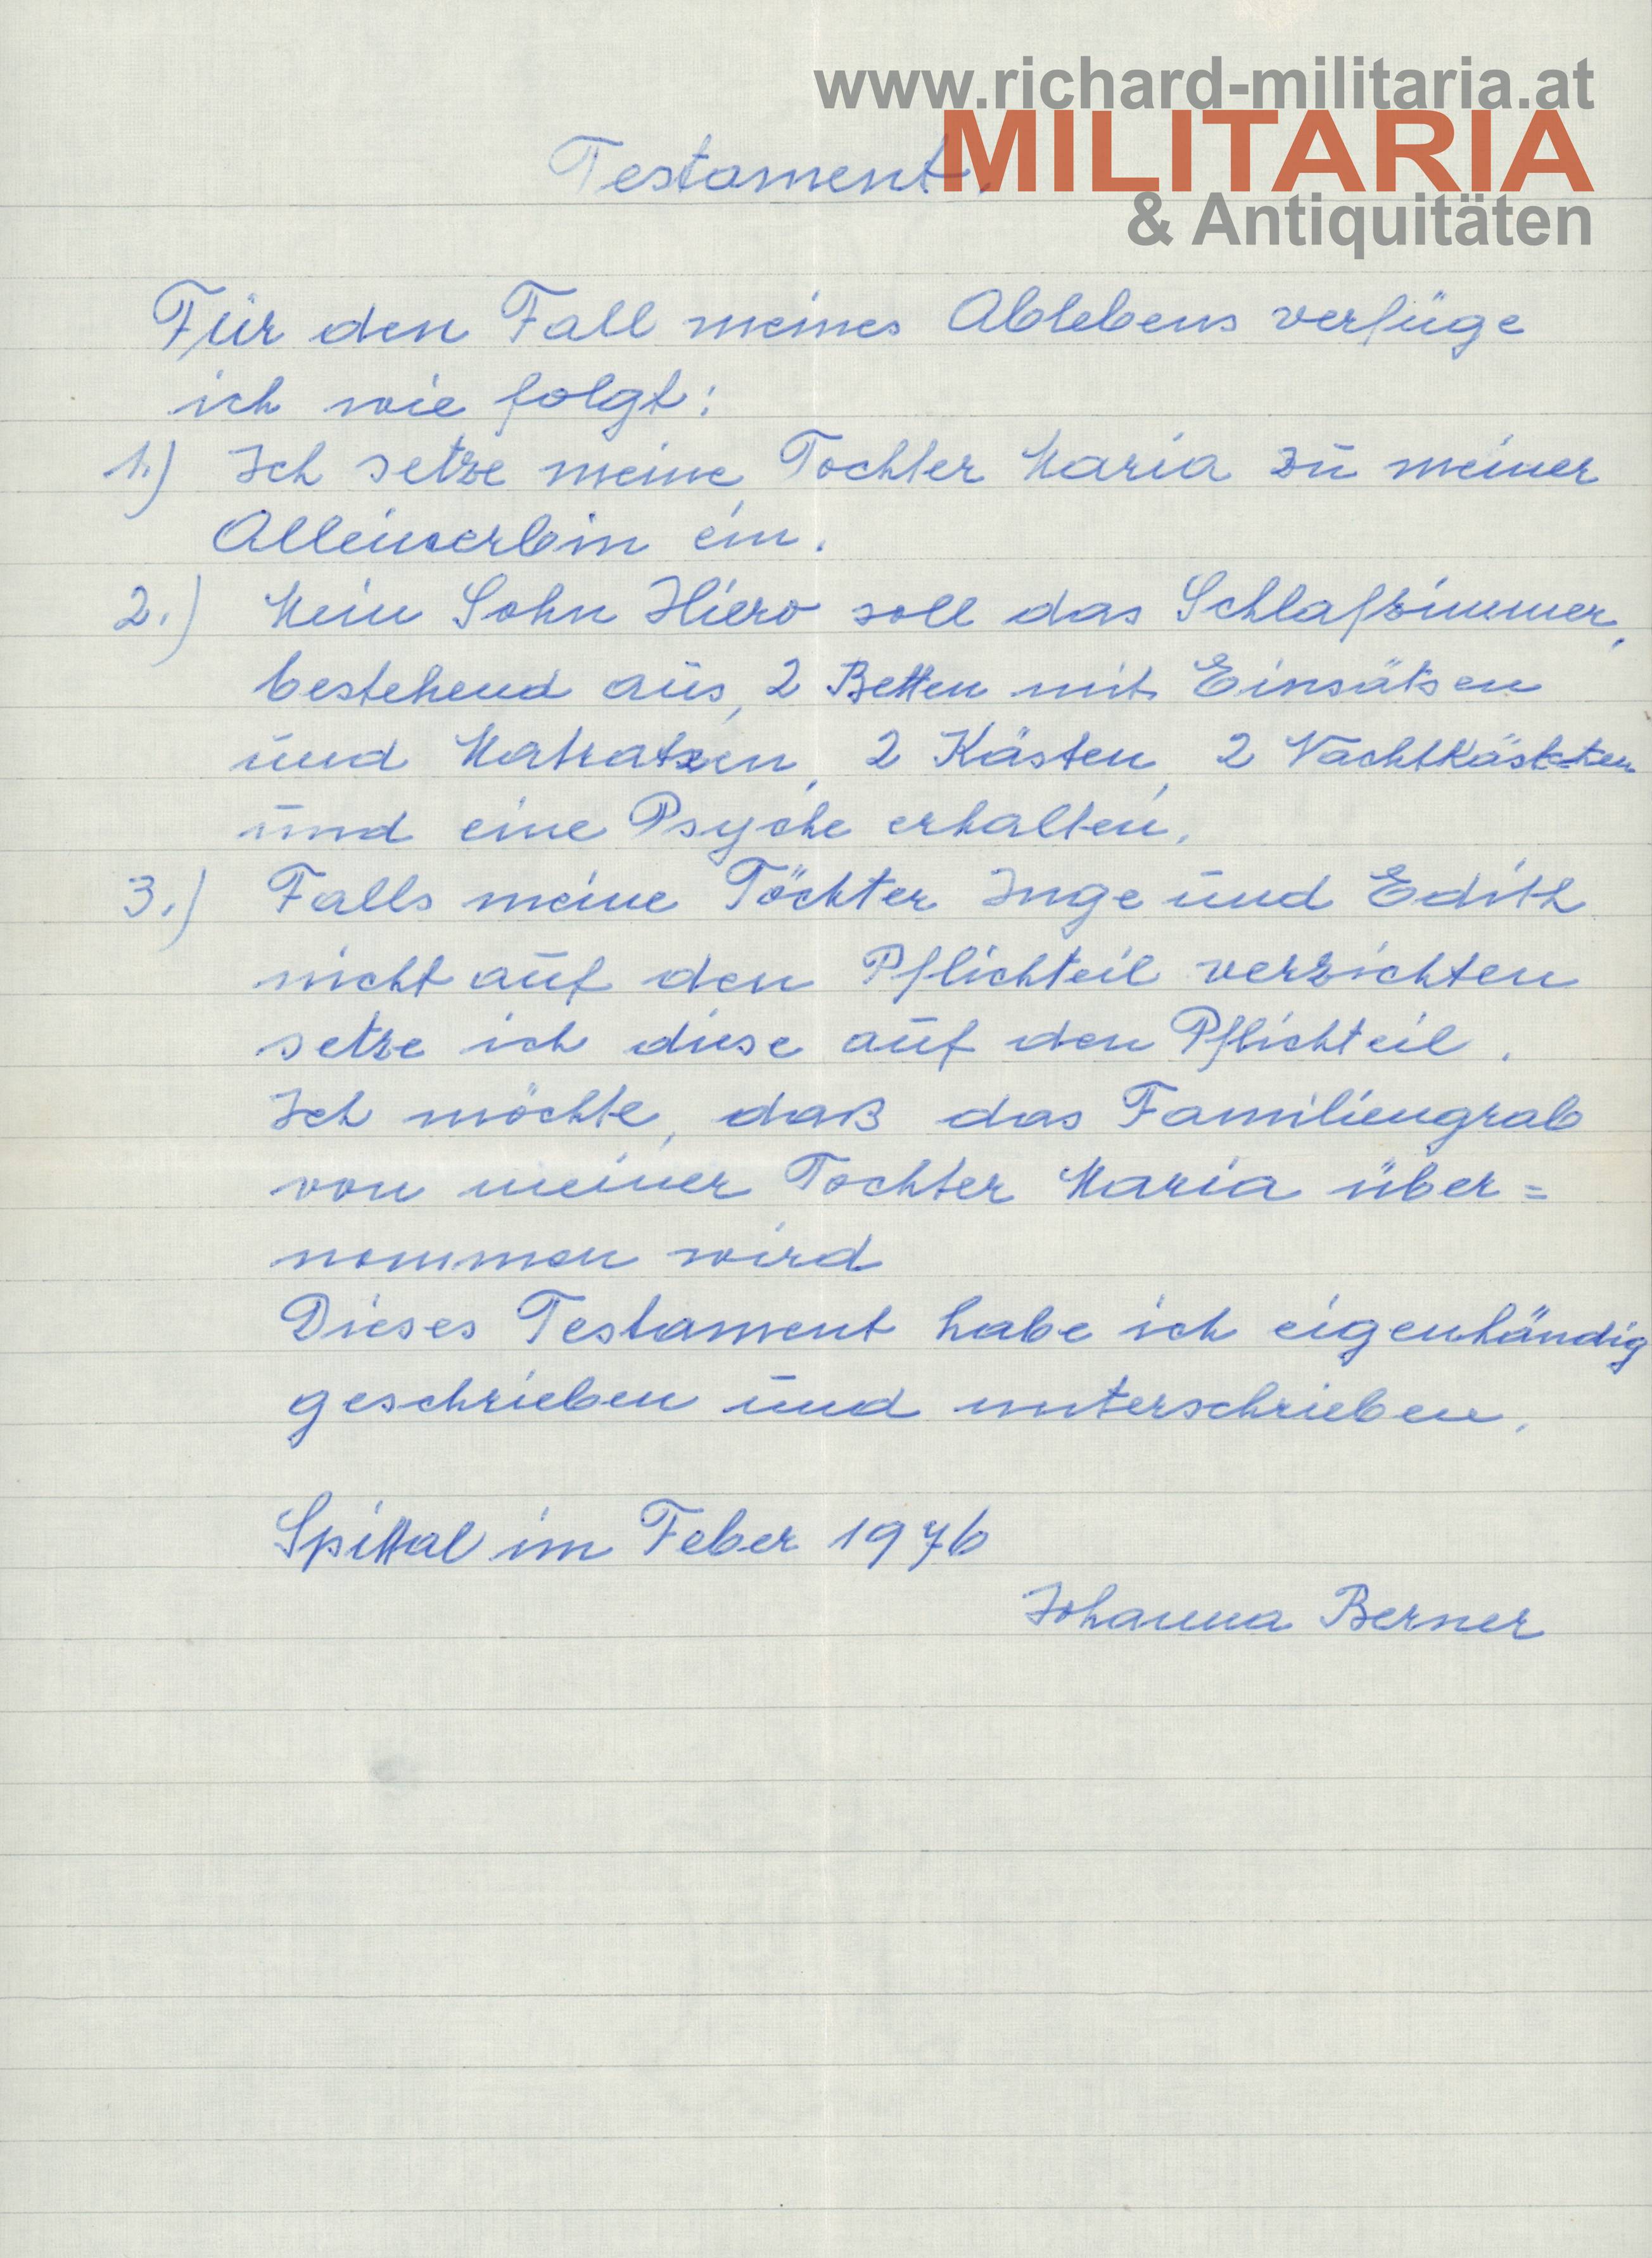 www.richard-militaria.at
MILITARIA
& Antiquitäten
Testament.
Für den Fall meines Ablebens verfüge
ich wie folgt:
1.) Ich setze meine Tochter Maria zu meiner
Alleinerbin ein.
2.) Mein Sohn Hiero soll das Schlafzimmer,
bestehend aus, 2 Betten mit Einsätsen
und Matratzen, 2 Kästen, 2 Nachtkästen
und eine Psyche erhalten.
3.) Falls meine Töchter Inge und Edith
nicht auf den Pflichteil verzichten
setze ich diese auf den Pflichteil.
Ich möchte, daß das Familiengrab
von meiner Tochter Maria über=
nommen wird
Dieses Testament habe ich eigenhändig
geschrieben und unterschrieben.
Spittal im Feber 1976
Johanna Berner